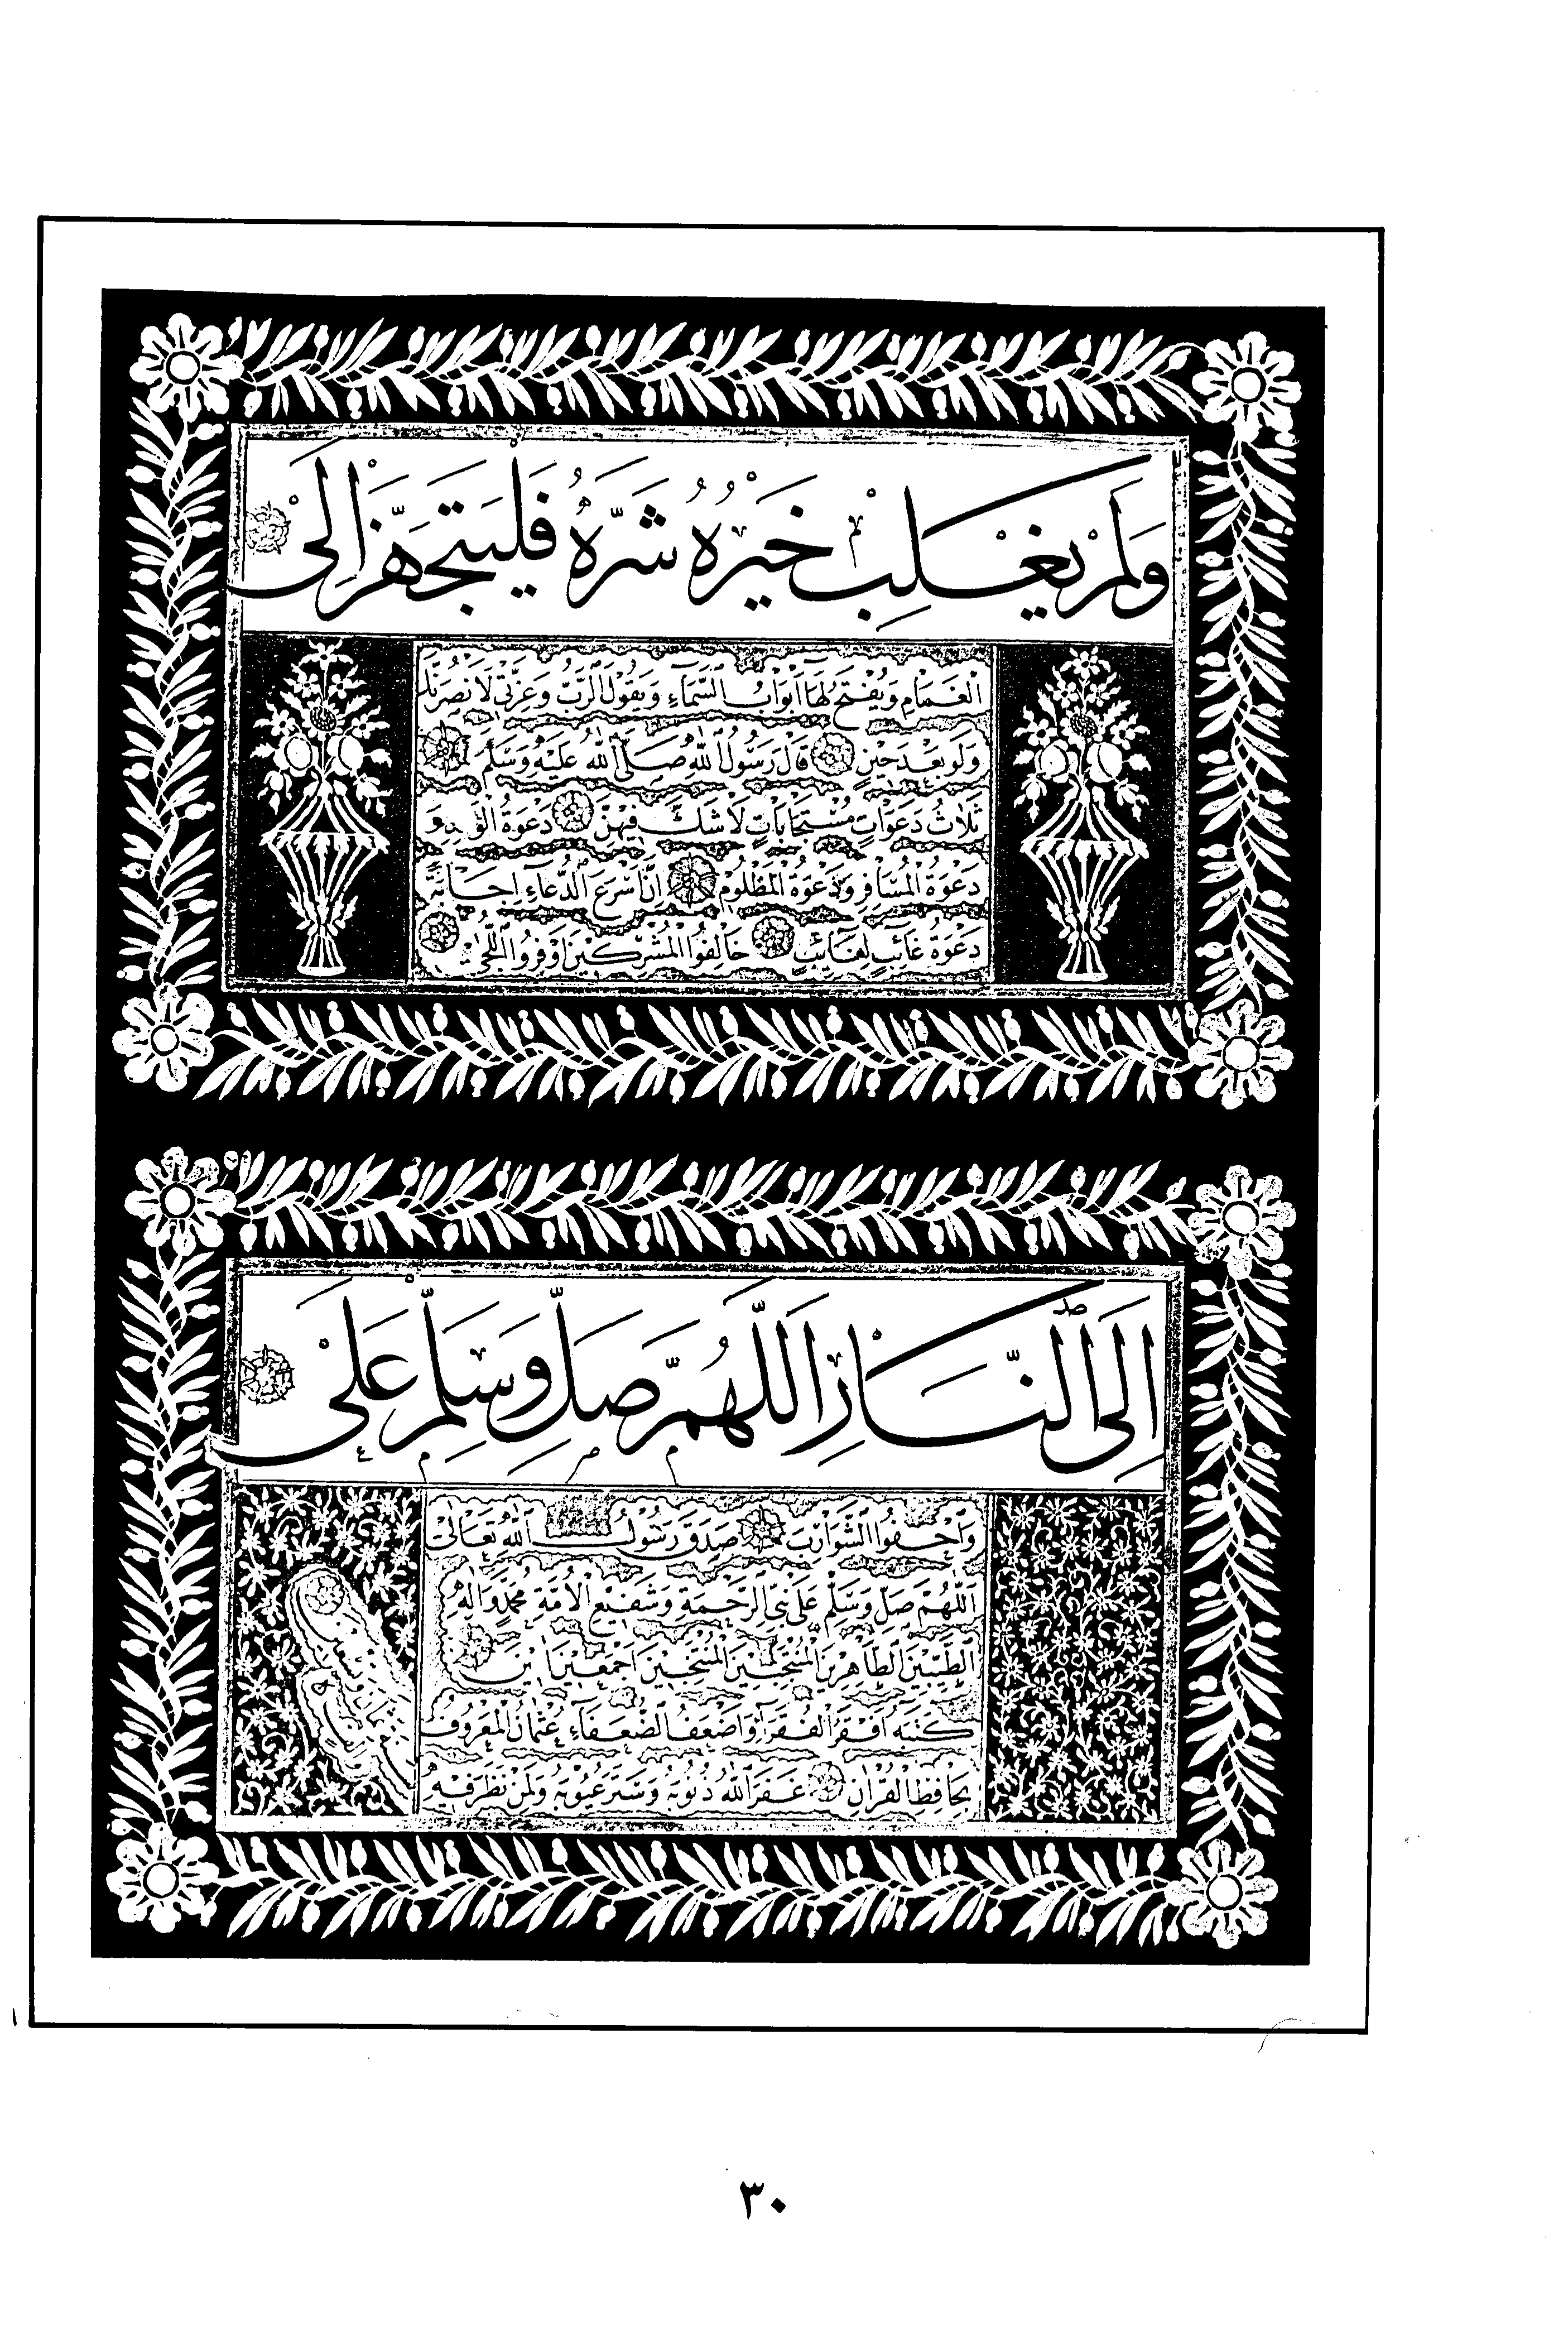 وَلَمْ يَغْلِبْ خَيْرُهُ شَرَّهُ فَلْيَتَجَهَّزْ إِلَى
الْغَمَامِ وَيُفْتَحُ لَهَا أَبْوَابُ السَّمَاءِ وَيَقُولُ الرَّبُّ وَعِزَّتِي لَأَنْصُرَنَّكِ
وَلَوْ بَعْدَ حِينٍ قَالَ رَسُولُ اللهِ صَلَّى اللهُ عَلَيْهِ وَسَلَّمَ
ثَلَاثُ دَعَوَاتٍ مُسْتَجَابَاتٍ لَا شَكَّ فِيهِنَّ دَعْوَةُ وَ
دَعْوَةُ الْمُسَافِرِ وَدَعْوَةُ الْمَظْلُومِ إِنَّ أَسْرَعَ الدُّعَاءِ إِجَابَةً
دَعْوَةُ غَائِبٍ لِغَائِبٍ خَالِفُوا الْمُشْرِكِينَ أَوْفِرُوا اللِّحَى
إِلَى النَّارِ اَللّٰهُمَّ صَلِّ وَسَلِّمْ عَلَى
وَاحْفُوا الشَّوَارِبَ صَدَقَ رَسُولُ اللهِ تَعَالَى
اَللّٰهُمَّ صَلِّ وَسَلِّمْ عَلَى نَبِيِّ الرَّحْمَةِ وَشَفِيعِ الْأُمَّةِ مُحَمَّدٍ وَآلِهِ
الطَّيِّبِينَ الطَّاهِرِينَ أَجْمَعِينَ
كَتَبَهُ أَفْقَرُ الْفُقَرَاءِ وَأَضْعَفُ الضُّعَفَاءِ عُثْمَانُ الْمَعْرُوفُ
بِحَافِظِ الْقُرْآنِ غَفَرَ اللهُ ذُنُوبَهُ وَسَتَرَ عُيُوبَهُ وَلِمَنْ نَظَرَ فِيهِ
٣٠